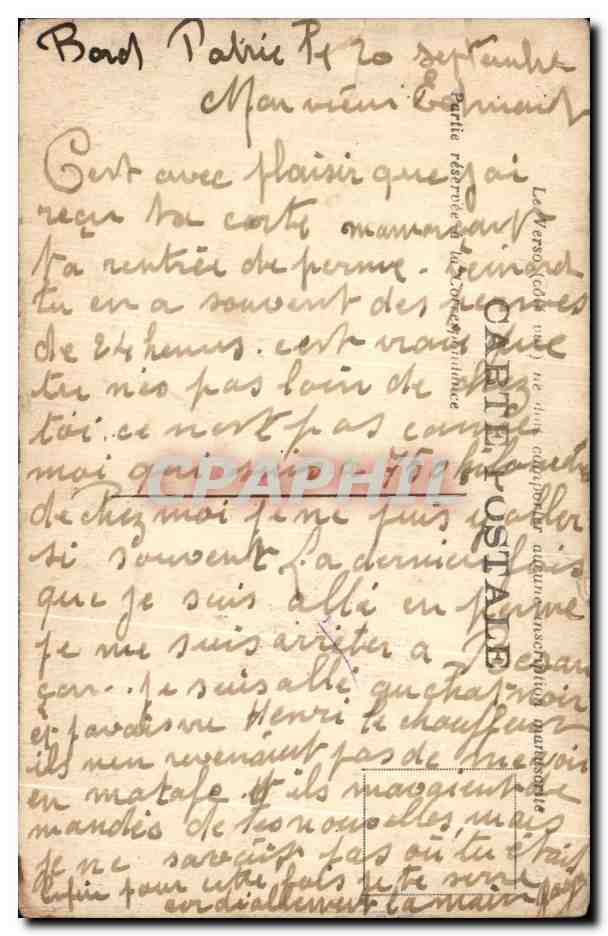 Bord Patrie le 20 septembre
Mon vieux
C'est avec plaisir que j'ai
reçu ta carte
ta rentrée de perme.
tu en a souvent des
de 24 heures. c'est vrai que
tu n'es pas loin de chez
toi. ce n'est pas comme
moi qui suis a 750
de chez moi je ne puis y aller
si souvent La dernier fois
que je suis allé en perme
je me suis arrêter a Besan
çon.. je suis allé au chat noir
et j'avais vu Henri le chauffeur
ils n'en revenait pas de me voir
en matafe. et ils m'avaient de
mandés de tes nouvelles, mais
je ne savait pas où tu était
Enfin pour cette fois je te serre
cordiallement la main
CARTE POSTALE
Partie réservée à la Correspondance
Le Verso (côté vue) ne doit comporter aucune inscription manuscrite
CPAPHIL